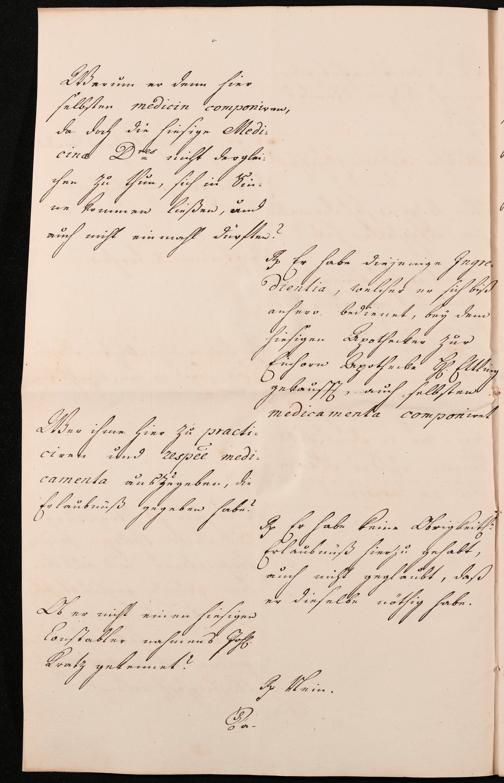 Warum er denn hier
selbsten medicin componiren,
da doch die hiesige Medi-
cinae D.res nicht derglei-
chen zu thun, sich in Sin-
ne kommen ließen, und
auch nicht einmahl dürften?
Rp Er habe diejenige Ingre-
dientia, welcher er sich biß
anhero bedienet, bey dem
hiesigen Apothecker zur
Einhorn Apothecke H. Elling
gekaufft, auch selbsten
medicamenta componiret
Wer ihme hier zu practi-
ciren und respée medi-
camenta auszugeben, die
Erlaubnüß gegeben habe?
Rp Er habe keine Obrigkeitl:
Erlaubnüß hierzu gehabt,
auch nicht geglaubt, daß
er dieselbe nöthig habe.
Ob er nicht einen hiesigen
Constabler nahmens Joh.
Kratz gekennet?
Rp Nein.
Da-